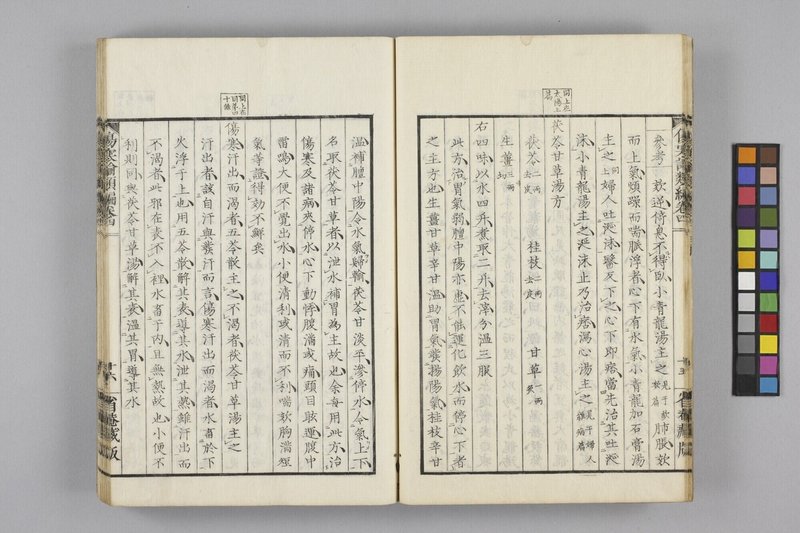 參考 欬逆倚息不得臥小青龍湯主之 見于欬嗽篇 肺脹欬
而上氣煩躁而喘脈浮者心下有水氣小青龍加石膏湯
主之 同上 婦人吐涎沫醫反下之心下即痞當先治其吐涎
沫小青龍湯主之涎沫止乃治痞瀉心湯主之 見于婦人雜病篇
茯苓甘草湯方
茯苓 二兩去皮 桂枝 二兩去皮 甘草 一兩炙
生薑 三兩切
右四味以水四升煮取二升去滓分溫三服
此方治胃氣弱膻中陽亦憊不能運化飲水而停心下者
之主方也生薑甘草辛甘溫助胃氣發揚陽氣桂枝辛甘
同上
傷寒論類編卷四
十五
溫補膻中陽令水氣歸輸茯苓甘淡平滲停水令氣上下
名取茯苓甘草者以泄水補胃為主故也余每用此方治
傷寒及諸病夾停水心下動悸腹滿或痛頭目眩運腹中
雷鳴大便不覺出水小便清利或清而不利喘欬胸滿短
氣等證得效不鮮矣
傷寒汗出而渴者五苓散主之不渴者茯苓甘草湯主之
汗出者該自汗與發汗而言傷寒汗出而渴者水畜於下
火浮于上也用五苓散解其表導其水泄其熱雖汗出而
不渴者此邪在表不入裡水畜于內且無熱故也小便不
利則同與茯苓甘草湯解其表溫其胃導其水
傷寒論類編卷四
十六